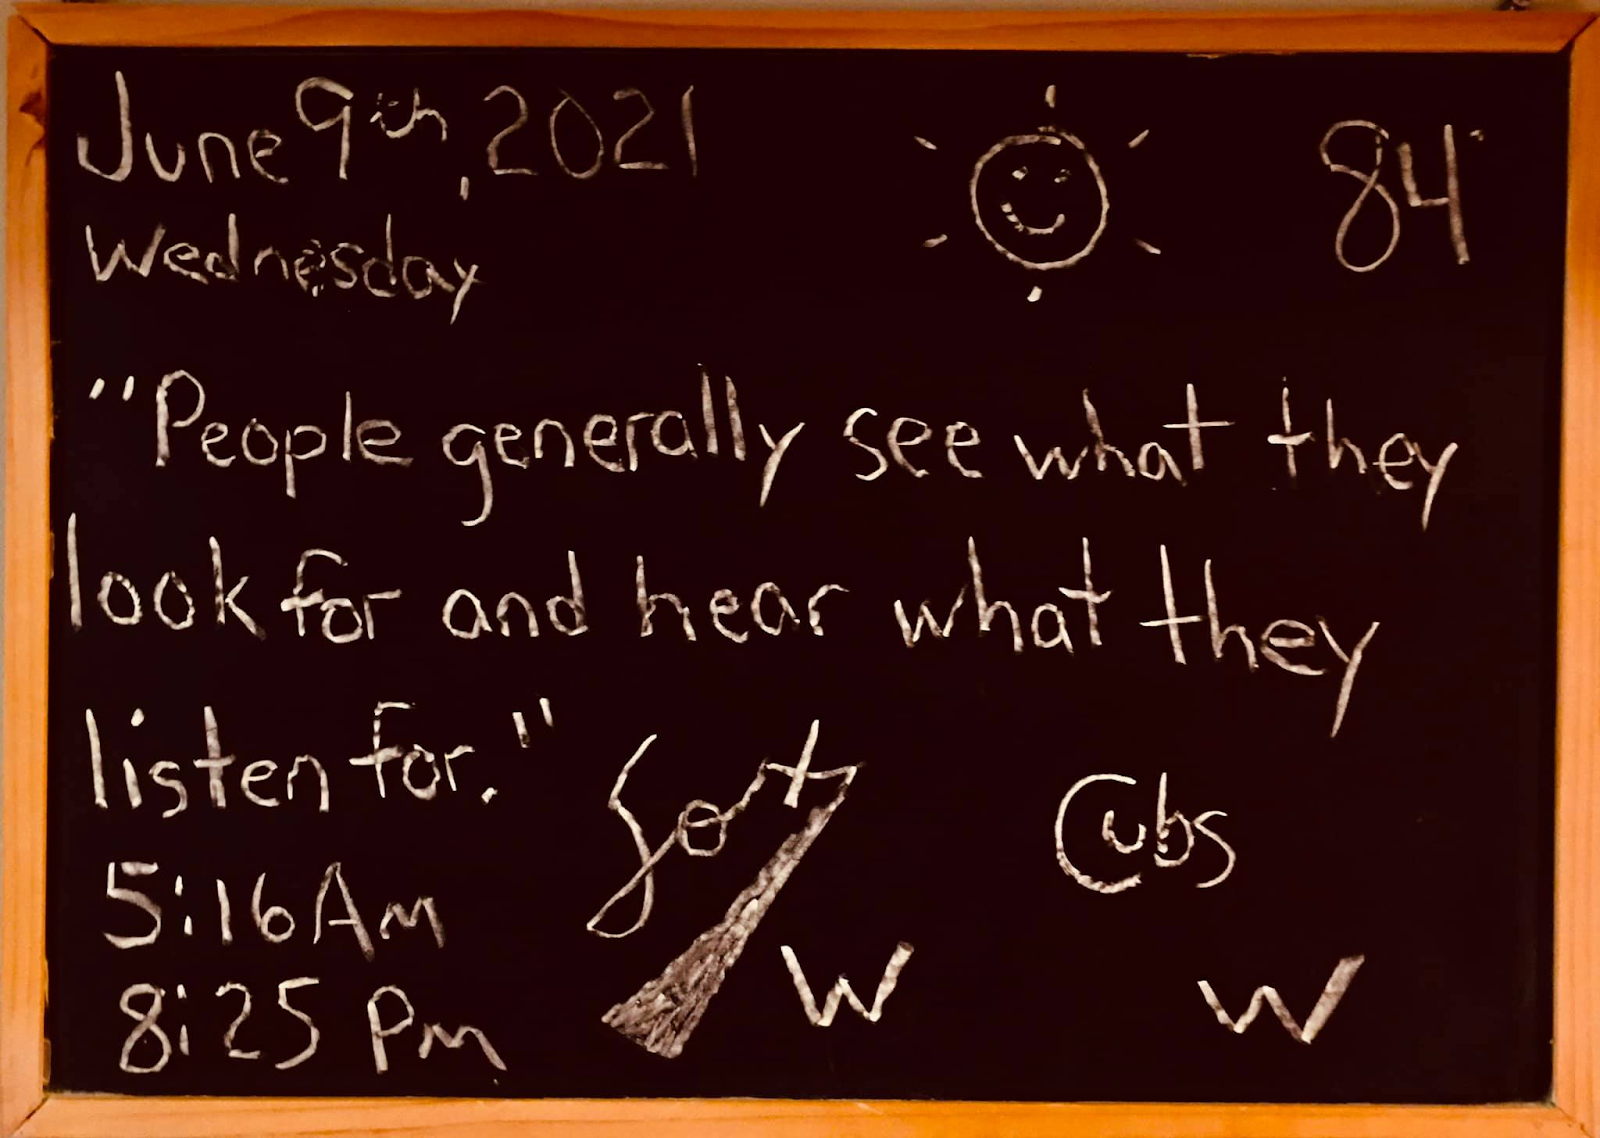 June 9th, 2021
84°
Wednesday
"People generally see what they
look for and hear what they
listen for."
Sox
Cubs
5:16 Am
8:25 Pm
W
W